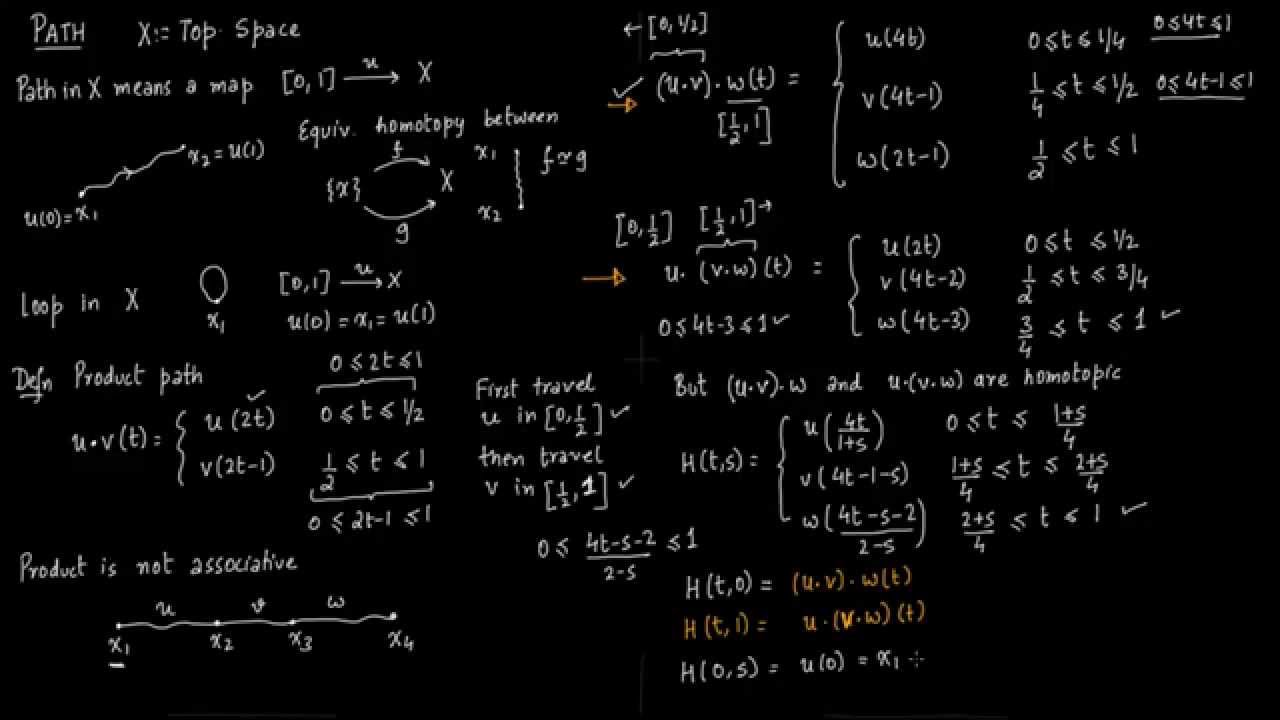 PATH X:= Top. Space
Path in X means a map [0,1] —u→ X
x₂ = u(1)
u(0) = x₁
Equiv. homotopy between
f
{x} X
g
x₁
x₂
f ≃ g
Loop in X
x₁
[0,1] —u→ X
u(0) = x₁ = u(1)
Defn Product path
0 ≤ 2t ≤ 1
u·v(t) = { u(2t) 0 ≤ t ≤ 1/2
v(2t-1) 1/2 ≤ t ≤ 1
0 ≤ 2t-1 ≤ 1
First travel
u in [0,1/2] ✓
then travel
v in [1/2,1] ✓
Product is not associative
u v w
x₁ x₂ x₃ x₄
0 ≤ (4t-s-2)/(2-s) ≤ 1
← [0,1/2]
✓ (u·v)·w(t) = { u(4t) 0 ≤ t ≤ 1/4 0 ≤ 4t ≤ 1
v(4t-1) 1/4 ≤ t ≤ 1/2 0 ≤ 4t-1 ≤ 1
[1/2,1]
w(2t-1) 1/2 ≤ t ≤ 1
[0,1/2] [1/2,1] →
→ u·(v·w)(t) = { u(2t) 0 ≤ t ≤ 1/2
v(4t-2) 1/2 ≤ t ≤ 3/4
w(4t-3) 3/4 ≤ t ≤ 1 ✓
0 ≤ 4t-3 ≤ 1 ✓
But (u·v)·w and u·(v·w) are homotopic
H(t,s) = { u(4t/(1+s)) 0 ≤ t ≤ (1+s)/4
v(4t-1-s) (1+s)/4 ≤ t ≤ (2+s)/4
w((4t-s-2)/(2-s)) (2+s)/4 ≤ t ≤ 1 ✓
H(t,0) = (u·v)·w(t)
H(t,1) = u·(v·w)(t)
H(0,s) = u(0) = x₁